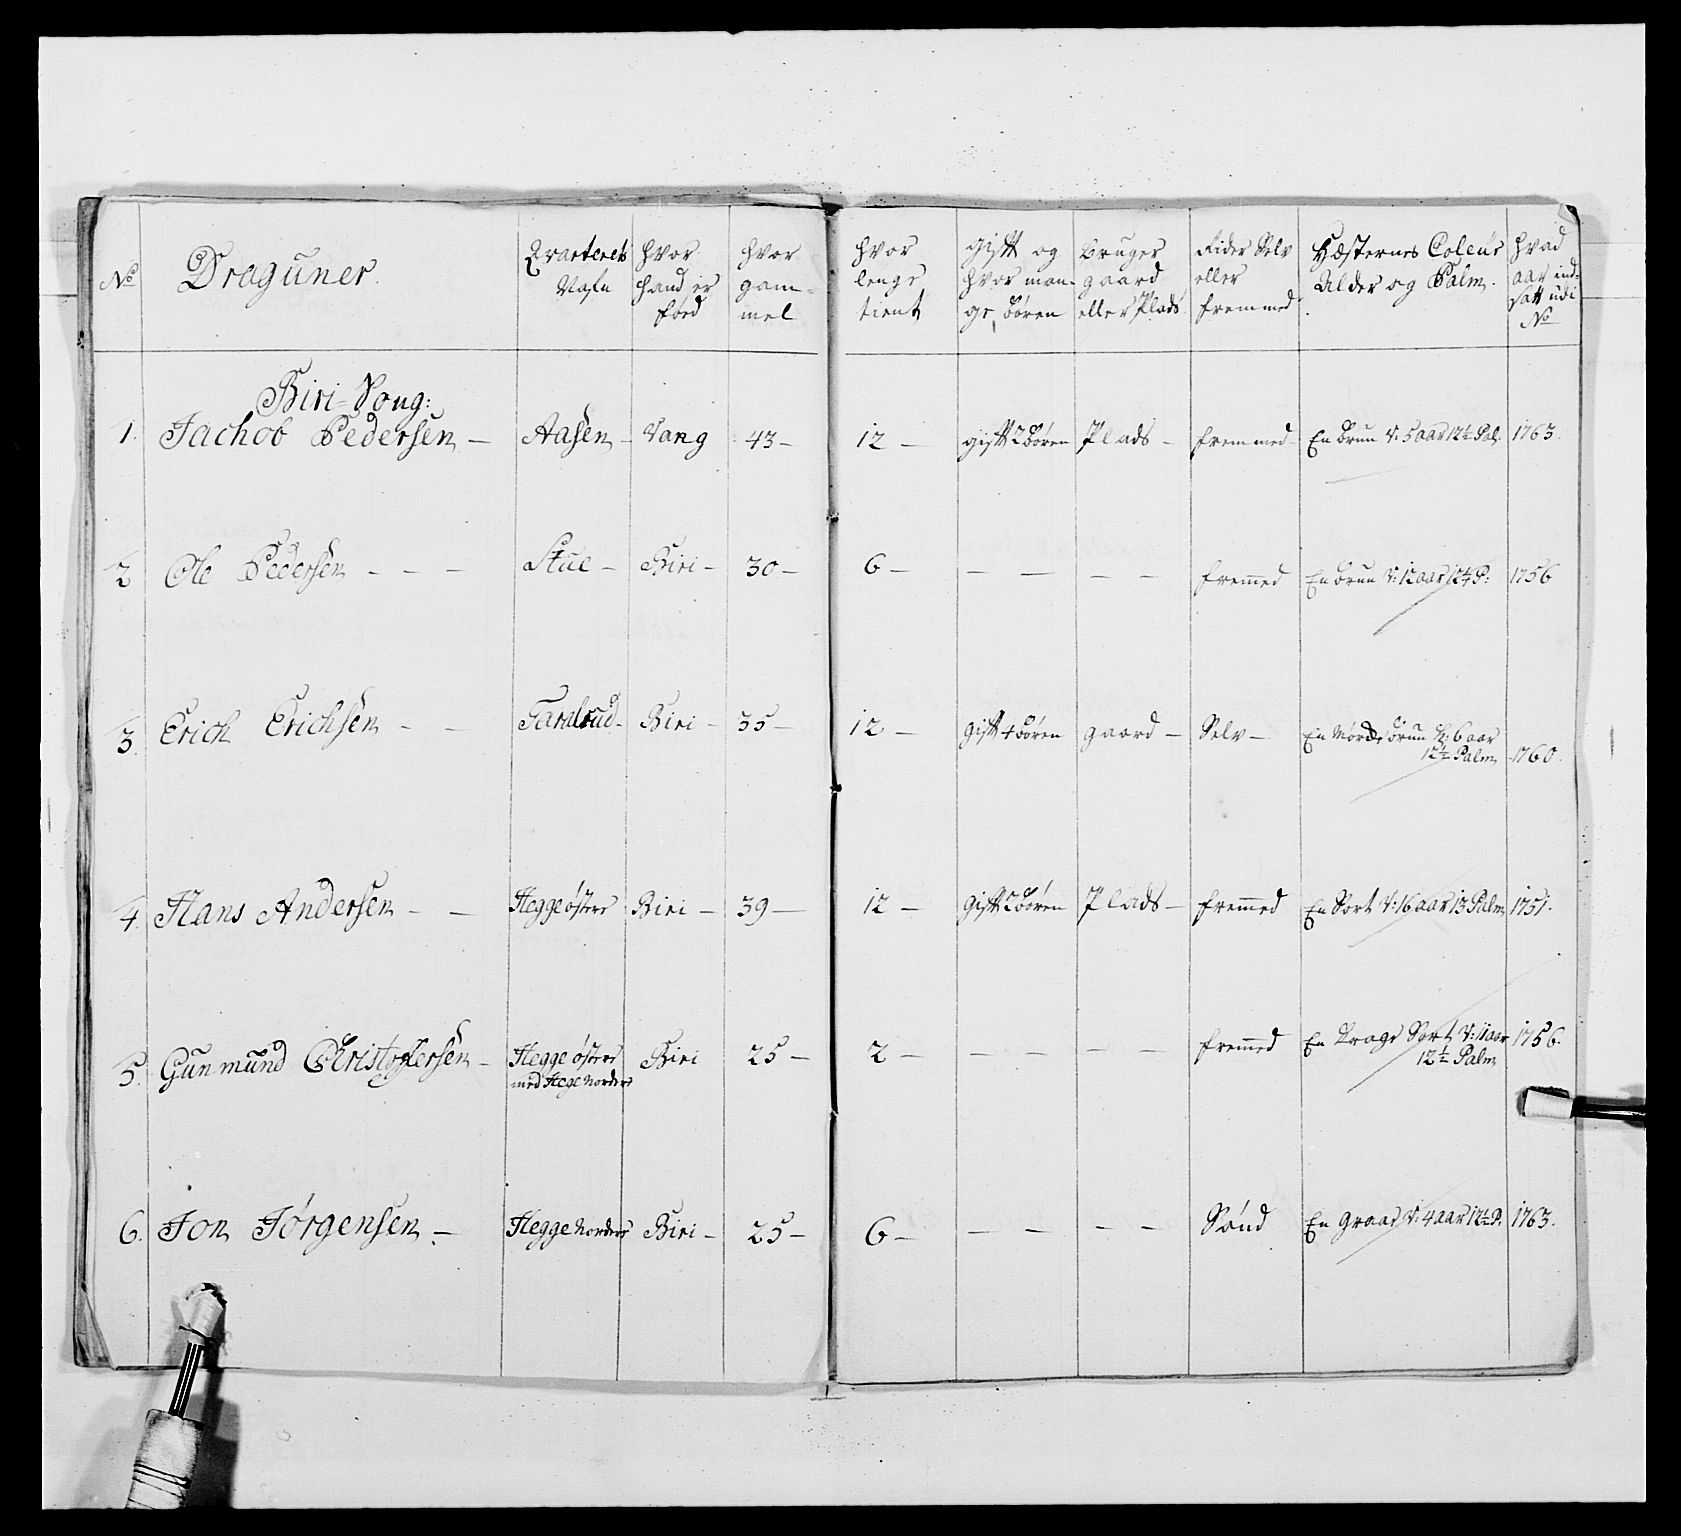 No Draguner. Qvarterets Nafn hvor hand er fød hvor gam- mel hvor lenge tient gift og hvor man- ge børen bruger gaard eller Plads Rider Selv eller fremmed Hæsternes Coleur Alder og Palm. hvad aar ind- satt udi No
Biri Soug:
1. Jachob Pedersen — Aasen — Vang 43 — 12 — gift 2 børen Plads — fremmed En brun V: 5 aar 12½ Pal. 1763.
2 Ole Pedersen - - - Stue — Biri — 30 — 6 — — — — — — fremed En brun V: 12 aar 12¼ P: 1756
3. Erich Erichsen - - Taralrud — Biri — 35 — 12 — gift 4 børen gaard — Selv — En Mørck brun H: 6 aar
12½ Palm 1760.
4. Hans Andersen - - Hegge østre Biri — 39 — 12 — gift 2 børen Plads — fremed En Sort V: 16 aar 13 Palm 1751.
5. Gunmund Christophersen — Hegge østre Biri 25 — 2 — — — — — — fremed En Sort V: 11 aar 1756.
med Hege Nordre 12½ Palm
6. Jon Jørgensen — Hegge Nordre Biri — 25 — 6 — — — — — Sønd En Graae V: 4 aar 12½ P. 1763.